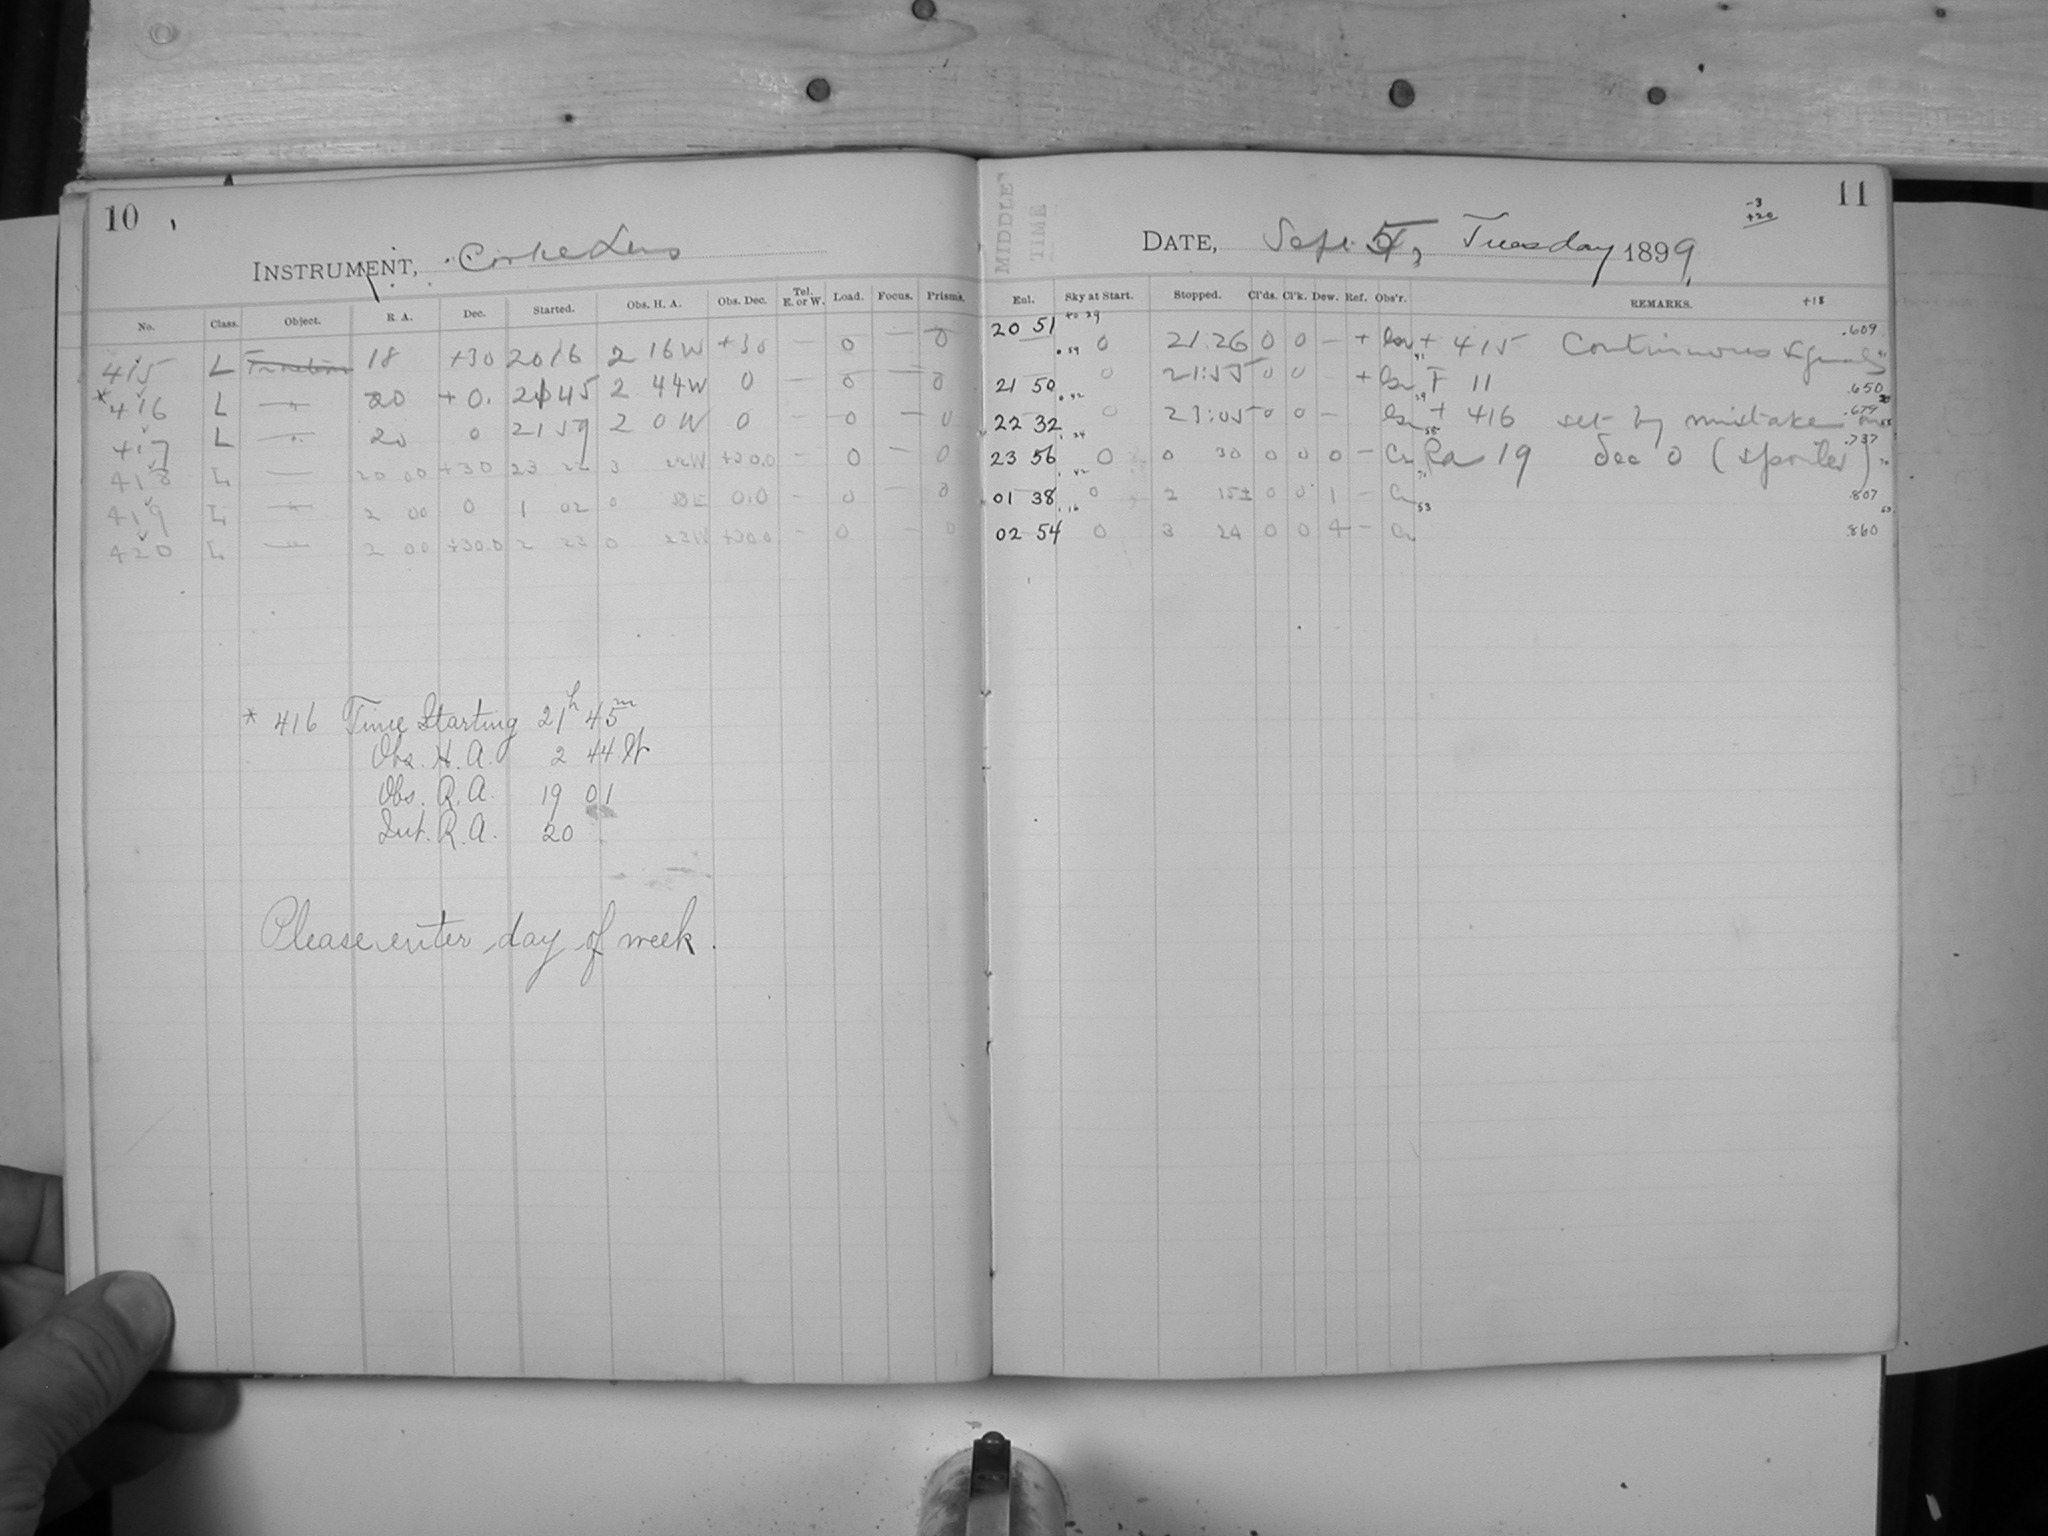 10
INSTRUMENT, Cooke Lens
No. Class. Object. R. A. Dec. Started. Obs. H. A. Obs. Dec. Tel. E. or W. Load. Focus. Prisms.
415 L 18 +30 20 16 2 16W +30 — 0 — 0
* 416 L —"— 20 +0. 21 45 2 44W 0 — 0 — 0
417 L —"— 20 0 21 59 2 0 W 0 — 0 — 0
418 L —"— 20 00 +30 23 22 3 22W +30.0 — 0 — 0
419 L —"— 2 00 0 1 02 0 0.0 — 0 — 0
420 L —"— 2 00 +30.0 2 23 0 23W +30.0 — 0 — 0
* 416 Time Starting 21h 45m
Obs. H. A. 2 44 W
Obs. R. A. 19 01
Int. R. A. 20
Please enter day of week.
11
-3
+20
MIDDLE
TIME
DATE, Sept. 5, Tuesday 1899
Exl. Sky at Start. Stopped. Cl'ds. Cl'k. Dew. Ref. Obs'r. REMARKS. +18
20 51 0 21.26 0 0 — + + 415 Continuous .609
21 50 0 21:55 0 0 + F 11 .650
22 32 0 23:05 0 0 — + 416 set by mistake on .679
23 56 0 0 30 0 0 0 — Cr Ra 19 Dec 0 (spoiled) .737
01 38 0 2 15± 0 0 1 — Cr .807
02 54 0 3 24 0 0 4 — Cr .860